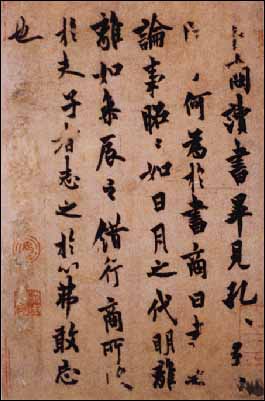 商讀書畢見孔〻子
何為於書商曰書
論事昭〻如日月之代明離
離如參辰之錯行商所
於夫子者志之於心弗敢忘
也